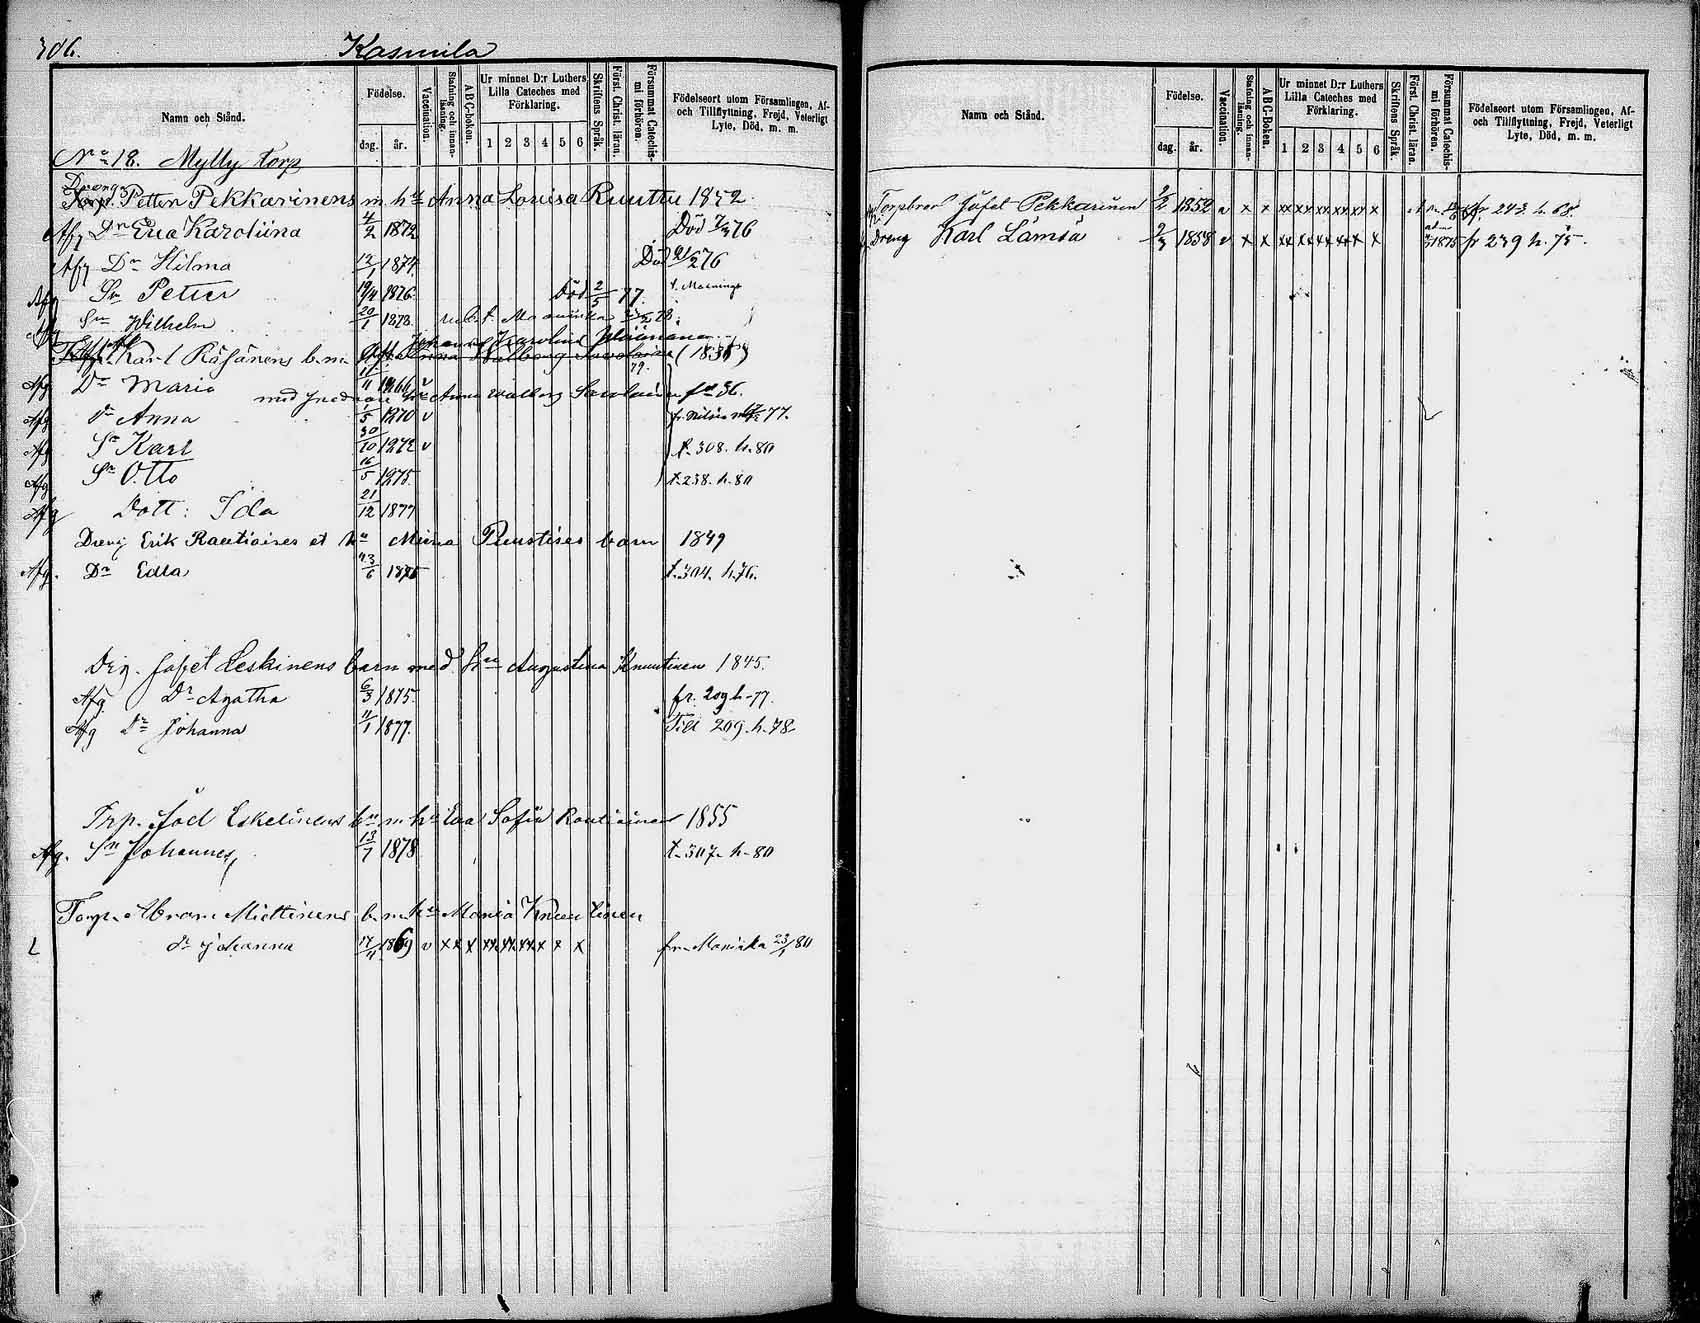 306. Kasmila
Namn och Stånd.
Födelse.
dag. år.
Vaccination.
Stafning och innanläsning.
A B C-boken.
Ur minnet D:r Luthers Lilla Cateches med Förklaring.
1 2 3 4 5 6
Skriftens Språk.
Först. Christ. läran.
Försummat Catechismi förhören.
Födelseort utom Församlingen, Af- och Tillflyttning, Frejd, Veterligt Lyte, Död, m. m.
No 18. Mylly torp
Drengs Petter Pekkarinens m. h:u Anna Lovisa Ruuttu 1852
Afg Dr Eva Karoliina 4/2 1872 Död 76
Afg Dr Hilma 12/1 1874 Död 76
Afg Sn Petter 19/4 1876 Död 2/5 77.
Afg Sn Wilhelm 20/1 1878 78.
Karl Räsänens b. m. Johanna Karolina
Afg Dr Maria 1866 v
med h:u Anna Walborg Savolainen f. 36.
Afg dr Anna 1/5 1870 v 77.
Afg Sn Karl 30/10 1872 v t. 308. h. 80
Afg Sn Otto 16/5 1875 t. 238. h. 80
Afg Dott: Ida 21/12 1877
Dreng Erik Rautiaises et h:u Miina Puustises barn 1849
Afg. Dr Edla 23/6 1875 t. 304. h. 76.
Drg. Jafet Leskinens barn med h:u Augustina Knuutinen 1845.
Afg Dr Agatha 6/3 1875 fr. 209 h-77.
Afg Dr Johanna 11/1 1877. Till 209. h. 78.
Trp. Joel Eskelinens bn m. h:u Eva Sofia Rautiainen 1855
Afg. Sn Johannes 13/7 1878 t. 307. h. 80
Torp. Abram Miettinens b. m. h:u Maria Knuutinen
dr Johanna 17/11 1869 v xx x xx xx xx x x x fr. Maninka 23/1 80
Namn och Stånd.
Födelse.
dag. år.
Vaccination.
Stafning och innanläsning.
A B C-boken.
Ur minnet D:r Luthers Lilla Cateches med Förklaring.
1 2 3 4 5 6
Skriftens Språk.
Först. Christ. läran.
Försummat Catechismi förhören.
Födelseort utom Församlingen, Af- och Tillflyttning, Frejd, Veterligt Lyte, Död, m. m.
Torpbror Jafet Pekkarinen 2/2 1852 v x x xx xx xx xx x x fr 243. h. 68.
Dreng Karl Lämsä 2/3 1858 v x x xx xx xx xx x x 1875 fr 239 h. 75.